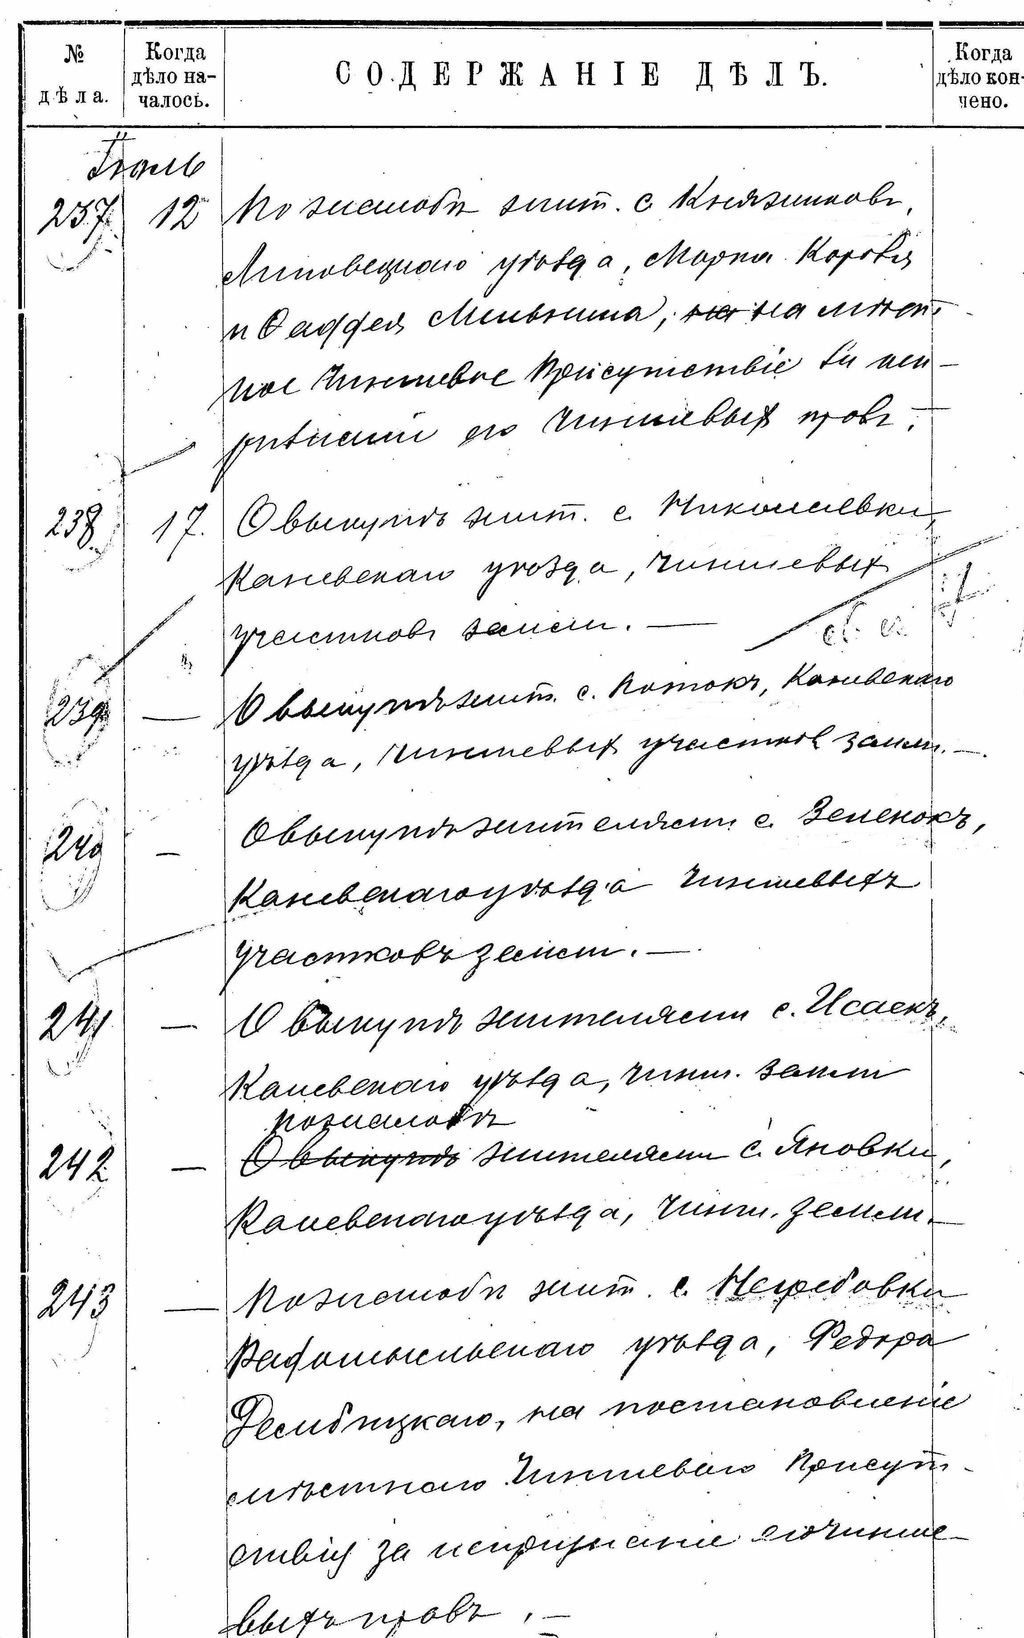 № дѣла.
Когда дѣло на-
чалось.
СОДЕРЖАНІЕ ДѢЛЪ.
Когда дѣло кон-
чено.
Іюль
237 12 По жалобѣ жит. с. Княжиковъ,
Липовецкаго уѣзда, Марка Короля
и Фаддея Мельника, на на мѣст-
ное Чиншевое Присутствіе за неп-
ризнаніи его Чиншевыхъ правъ.
238 17. О выкупѣ жит. с. Николаевки,
Каневскаго уѣзда, Чиншевых
участковъ земли. —
239 — О выкупѣ жит. с. Потокъ, Каневскаго
уѣзда, Чиншевых участков земли. —
240 — О выкупѣ жителями с. Зеленокъ,
Каневскаго уѣзда Чиншевыхъ
участковъ земли. —
241 — О выкупѣ жителями с. Исаекъ,
Каневскаго уѣзда, чинш. земли
по жалобѣ
242 — О выкупѣ жителями с. Яновки,
Каневскаго уѣзда, Чинш. земли. —
243 — По жалобѣ жит. с.
Радомысльскаго уѣзда, Федора
на постановленіе
мѣстнаго Чиншеваго Присут-
ствія за непризнаніе его чинше-
выхъ правъ. —